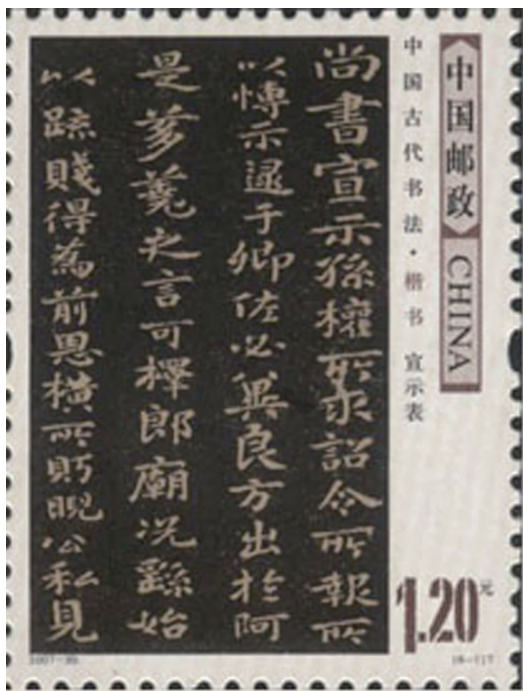 中国邮政 CHINA
中国古代书法·楷书 宣示表
尚書宣示孫權所求詔令所報所
以愽示逮于卿佐必冀良方出於阿
是芻蕘之言可擇郎廟況繇始
以踈賤得為前恩橫所盱睨公私見
1.20元
2007-30
(6-1)T